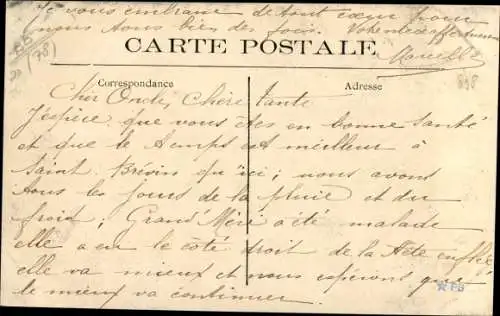 Je vous embrasse de tout cœur pour
nous tous bien des fois. Votre nièce affectueuse
Marcelle
(78)
CARTE POSTALE
898
Correspondance
Adresse
Cher Oncle, Chère tante
J'espère que vous êtes en bonne santé
et que le temps est meilleur à
Saint Brévin qu'ici; nous avons
tous les jours de la pluie et du
froid; Grand'Mère a été malade
elle a eu le côté droit de la tête enflée
elle va mieux et nous espérons que
le mieux va continuer.